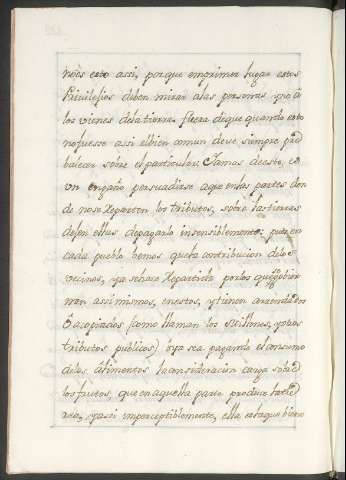 no es esto assi, porque en primer lugar estos
Privilegios deben mirar alas personas, y no à
los vienes dela tierra. fuera deque quando esto
no fuesse assi el bien comun deve siempre pre
balecer sobre el particular. Jamas de esto, es
vn engaño persuadirse aque enlas partes don
de nose Reparten los tributos, sobre las tierras
dejen ellas depagarlo insensiblemente; pues en
cada pueblo bemos que la contribucion delos
vecinos, ya se hace Repartida por los que gobier
nan assimismos, en estos, y tienen arrendados
ô acopiados (como llaman los Millones, y otros
tributos publicos) o ya sea pagando el consumo
delos Alimentos la consideracion carga sobre
los frutos, que en aquella parte produce la tie
rra, y assi imperceptiblemente, ella es la que biene